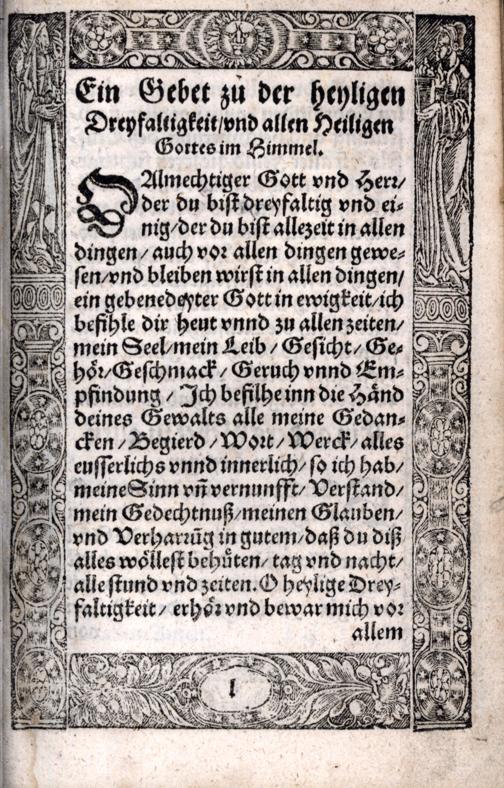 Ein Gebet zů der heyligen
Dreyfaltigkeit/vnd allen Heiligen
Gottes im Himmel.
O Almechtiger Gott vnd Herr/
der du bist dreyfaltig vnd ei-
nig/der du bist allezeit in allen
dingen/auch vor allen dingen gewe-
sen/vnd bleiben wirst in allen dingen/
ein gebenedeyter Gott in ewigkeit/ich
befihle dir heut vnnd zu allen zeiten/
mein Seel/mein Leib/Gesicht/Ge-
hör/Geschmack/Geruch vnnd Em-
pfindung/Ich befilhe inn die Händ
deines Gewalts alle meine Gedan-
cken/Begierd/Wort/Werck/alles
eusserlichs vnnd innerlich/so ich hab/
meine Sinn vñ vernunfft/Verstand/
mein Gedechtnuß/meinen Glauben/
vnd Verharrūg in gutem/daß du diß
alles wöllest behüten/tag vnd nacht/
alle stund vnd zeiten. O heylige Drey-
faltigkeit/erhör vnd bewar mich vor
allem
1